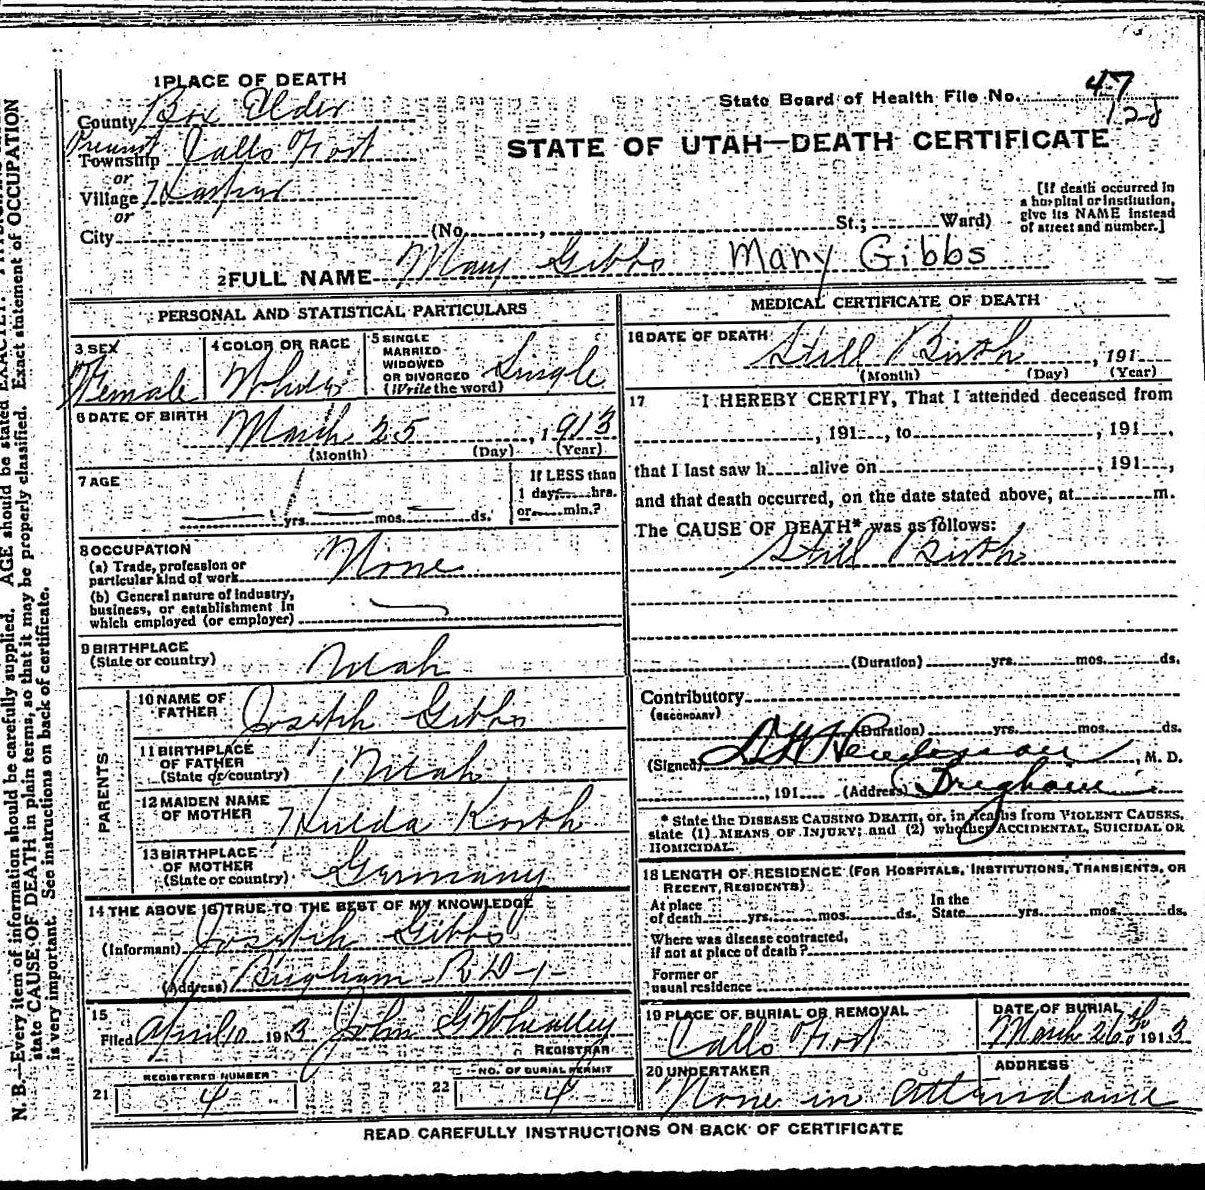 1 PLACE OF DEATH
County Box Elder
State Board of Health File No. 47
128
Precinct
Township Calls Fort
or
Village Harper
or
City (No. , St.; Ward)
STATE OF UTAH—DEATH CERTIFICATE
[If death occurred in
a hospital or institution,
give its NAME instead
of street and number.]
2 FULL NAME Mary Gibbs Mary Gibbs
PERSONAL AND STATISTICAL PARTICULARS
3 SEX
Female
4 COLOR OR RACE
White
5 SINGLE
MARRIED
WIDOWED
OR DIVORCED
(Write the word)
Single
6 DATE OF BIRTH
March 25, 1913
(Month) (Day) (Year)
7 AGE
yrs. mos. ds.
If LESS than
1 day, hrs.
or min.?
8 OCCUPATION
(a) Trade, profession or
particular kind of work None
(b) General nature of industry,
business, or establishment in
which employed (or employer)
9 BIRTHPLACE
(State or country) Utah
PARENTS
10 NAME OF
FATHER Joseph Gibbs
11 BIRTHPLACE
OF FATHER
(State or country) Utah
12 MAIDEN NAME
OF MOTHER Hulda Korth
13 BIRTHPLACE
OF MOTHER
(State or country) Germany
14 THE ABOVE IS TRUE TO THE BEST OF MY KNOWLEDGE
(Informant) Joseph Gibbs
(Address) Brigham R D-1-
15
Filed April 10 1913 John G Wheatley
REGISTRAR
REGISTERED NUMBER
21 4
NO. OF BURIAL PERMIT
22 4
MEDICAL CERTIFICATE OF DEATH
16 DATE OF DEATH
Still Birth, 191
(Month) (Day) (Year)
17 I HEREBY CERTIFY, That I attended deceased from
, 191 , to , 191 ,
that I last saw h alive on , 191 ,
and that death occurred, on the date stated above, at m.
The CAUSE OF DEATH* was as follows:
Still Birth
(Duration) yrs. mos. ds.
Contributory
(SECONDARY)
(Duration) yrs. mos. ds.
(Signed) Henderson, M. D.
, 191 (Address) Brigham
* State the DISEASE CAUSING DEATH, or, in deaths from VIOLENT CAUSES,
state (1) MEANS OF INJURY; and (2) whether ACCIDENTAL, SUICIDAL OR
HOMICIDAL.
18 LENGTH OF RESIDENCE (FOR HOSPITALS, INSTITUTIONS, TRANSIENTS, OR
RECENT RESIDENTS)
At place
of death yrs. mos. ds.
In the
State yrs. mos. ds.
Where was disease contracted,
if not at place of death?
Former or
usual residence
19 PLACE OF BURIAL OR REMOVAL
Calls Fort
DATE OF BURIAL
March 26th 1913
20 UNDERTAKER
ADDRESS
None in attendance
READ CAREFULLY INSTRUCTIONS ON BACK OF CERTIFICATE
N. B.—Every item of information should be carefully supplied. AGE should be stated EXACTLY.
state CAUSE OF DEATH in plain terms, so that it may be properly classified. Exact statement of OCCUPATION
is very important. See instructions on back of certificate.